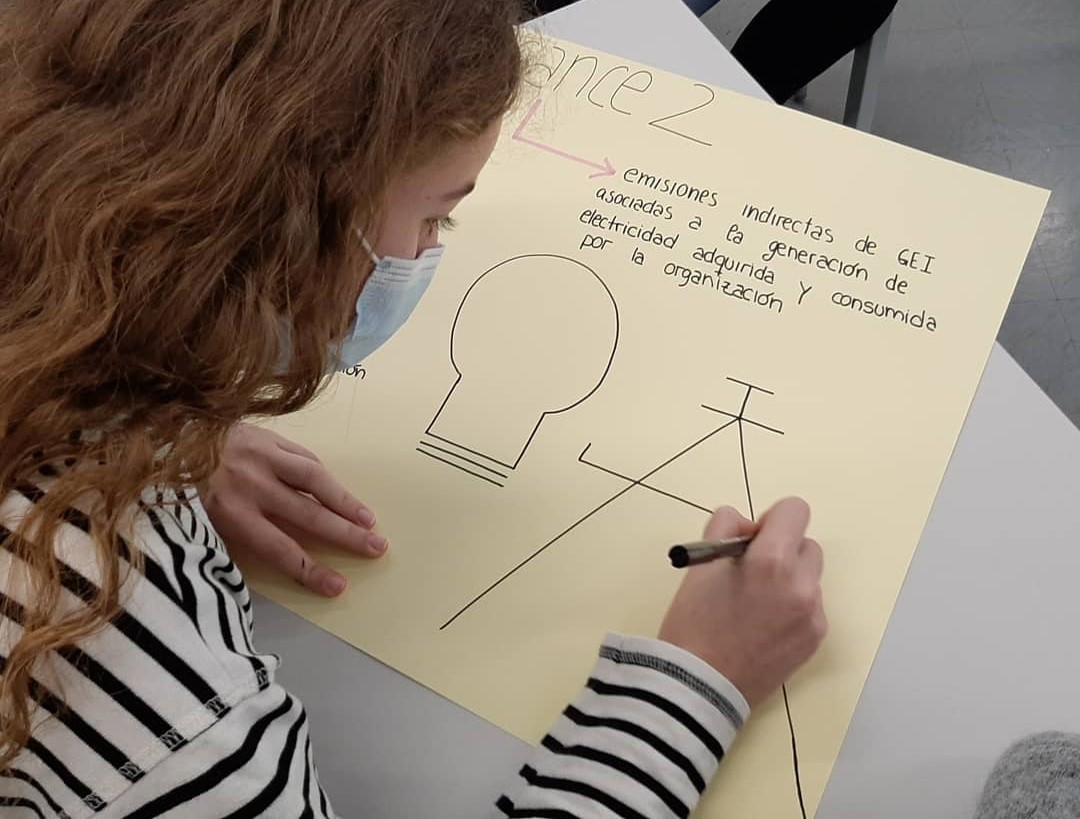 ance 2
emisiones indirectas de GEI
asociadas a la generación de
electricidad adquirida y consumida
por la organización
ión